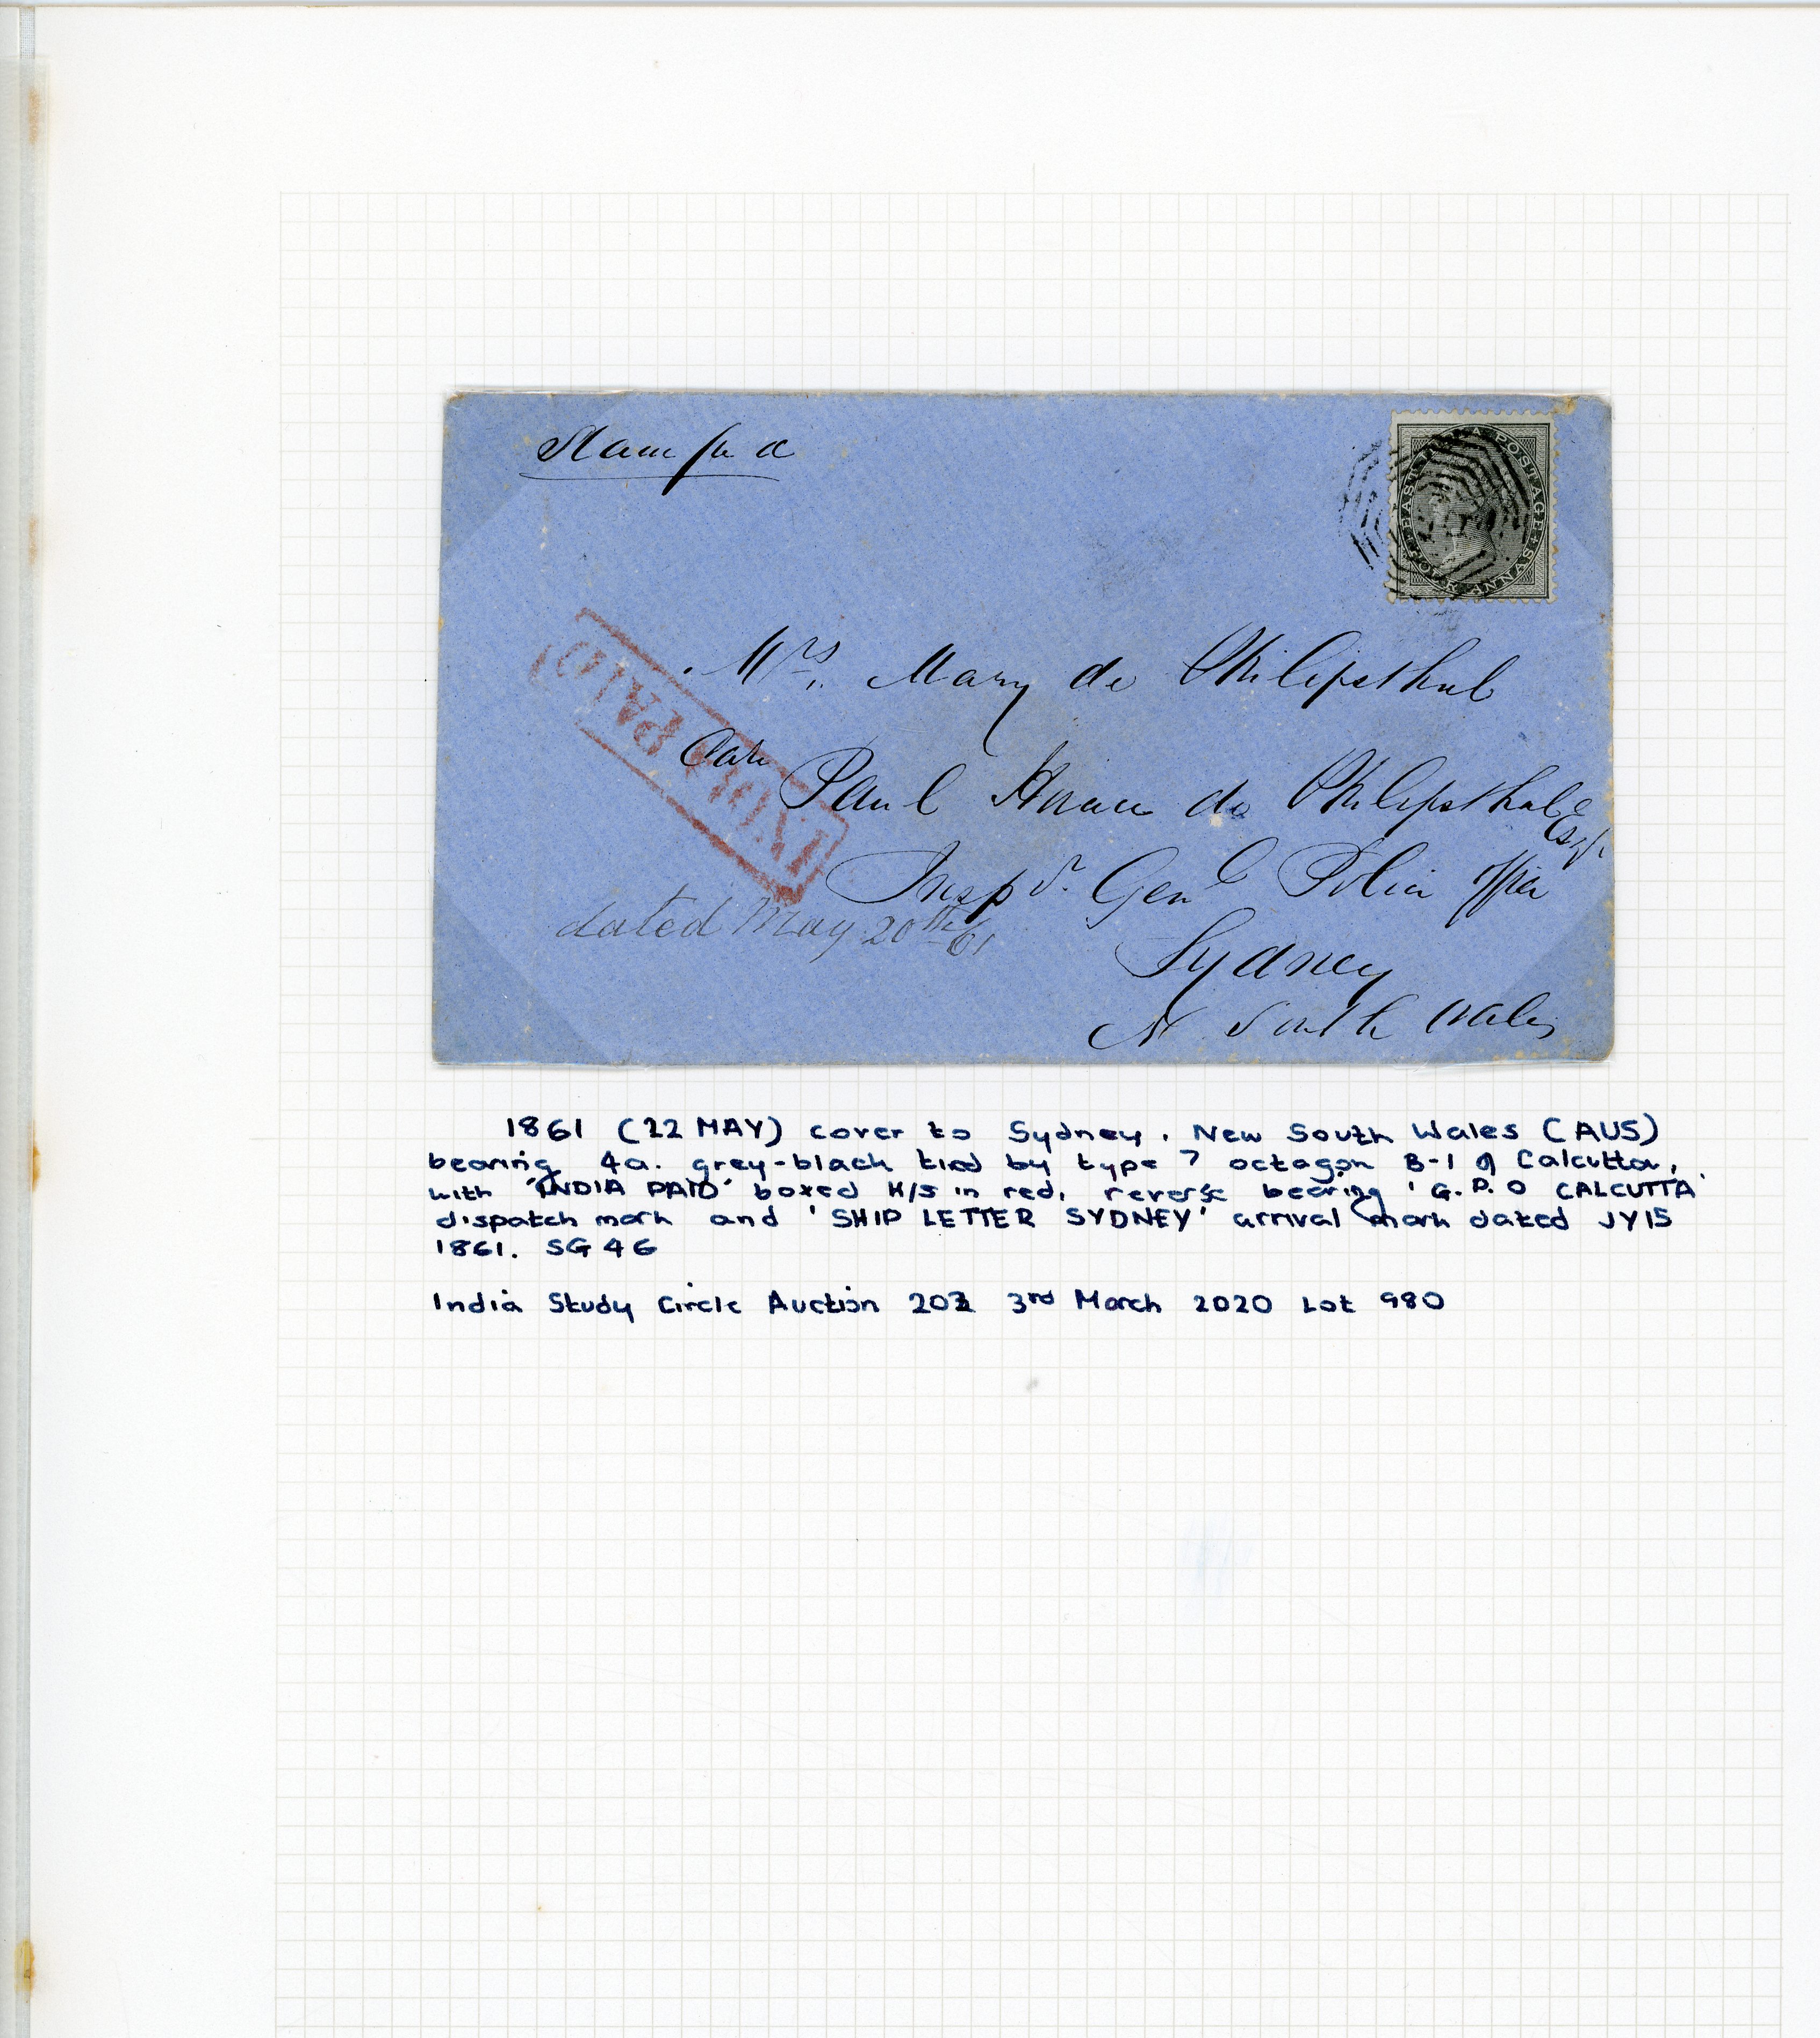 Stamped
EAST INDIA POSTAGE
FOUR ANNAS
INDIA PAID
Mrs. Mary de Philipsthal
Care
Paul de Philipsthal
Esqr
Inspr. Genl Police Office
dated May 20th 61
Sydney
N South Wales
1861 (22 MAY) cover to Sydney, New South Wales (AUS)
bearing 4a. grey-black tied by type 7 octagon B-1 of Calcutta,
with 'INDIA PAID' boxed H/S in red, reverse bearing 'G.P.O CALCUTTA'
dispatch mark and 'SHIP LETTER SYDNEY' arrival mark dated JY15
1861. SG 46
India Study Circle Auction 3rd March 2020 Lot 980